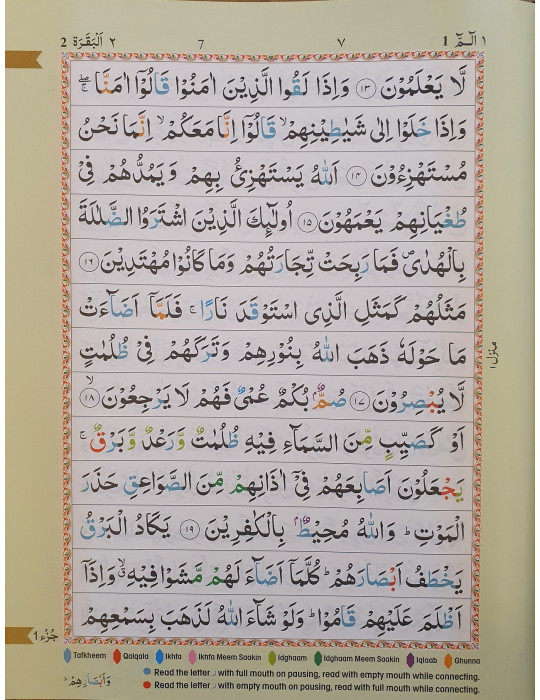 ١ الٓمّٓ 1 ٧ 7 ٢ اَلْبَقَرَة 2
لَّا يَعْلَمُوْنَ ۝١٣ وَاِذَا لَقُوا الَّذِيْنَ اٰمَنُوْا قَالُوْٓا اٰمَنَّا ۚۖ
وَاِذَا خَلَوْا اِلٰى شَيٰطِيْنِهِمْ ۙ قَالُوْٓا اِنَّا مَعَكُمْ ۙ اِنَّمَا نَحْنُ
مُسْتَهْزِءُوْنَ ۝١٤ اَللّٰهُ يَسْتَهْزِئُ بِهِمْ وَيَمُدُّهُمْ فِيْ
طُغْيَانِهِمْ يَعْمَهُوْنَ ۝١٥ اُولٰٓئِكَ الَّذِيْنَ اشْتَرَوُا الضَّلٰلَةَ
بِالْهُدٰى ۪ فَمَا رَبِحَتْ تِّجَارَتُهُمْ وَمَا كَانُوْا مُهْتَدِيْنَ ۝١٦
مَثَلُهُمْ كَمَثَلِ الَّذِي اسْتَوْقَدَ نَارًا ۚ فَلَمَّآ اَضَآءَتْ
مَا حَوْلَهٗ ذَهَبَ اللّٰهُ بِنُوْرِهِمْ وَتَرَكَهُمْ فِيْ ظُلُمٰتٍ
لَّا يُبْصِرُوْنَ ۝١٧ صُمٌّۢ بُكْمٌ عُمْيٌ فَهُمْ لَا يَرْجِعُوْنَ ۝١٨ ۙ
اَوْ كَصَيِّبٍ مِّنَ السَّمَآءِ فِيْهِ ظُلُمٰتٌ وَّرَعْدٌ وَّبَرْقٌ ۚ
يَجْعَلُوْنَ اَصَابِعَهُمْ فِيْٓ اٰذَانِهِمْ مِّنَ الصَّوَاعِقِ حَذَرَ
الْمَوْتِ ؕ وَاللّٰهُ مُحِيْطٌۢ بِالْكٰفِرِيْنَ ۝١٩ يَكَادُ الْبَرْقُ
يَخْطَفُ اَبْصَارَهُمْ ؕ كُلَّمَآ اَضَآءَ لَهُمْ مَّشَوْا فِيْهِ ۙۗ وَاِذَآ
اَظْلَمَ عَلَيْهِمْ قَامُوْا ؕ وَلَوْ شَآءَ اللّٰهُ لَذَهَبَ بِسَمْعِهِمْ
منزل ١
جُزء 1
Tafkheem Qalqala Ikhfa Ikhfa Meem Saakin Idghaam Idghaam Meem Saakin Iqlaab Ghunna
Read the letter ر with full mouth on pausing, read with empty mouth while connecting.
Read the letter ر with empty mouth on pausing, read with full mouth while connecting.
وَاَبْصَارِهِمْ ؕ